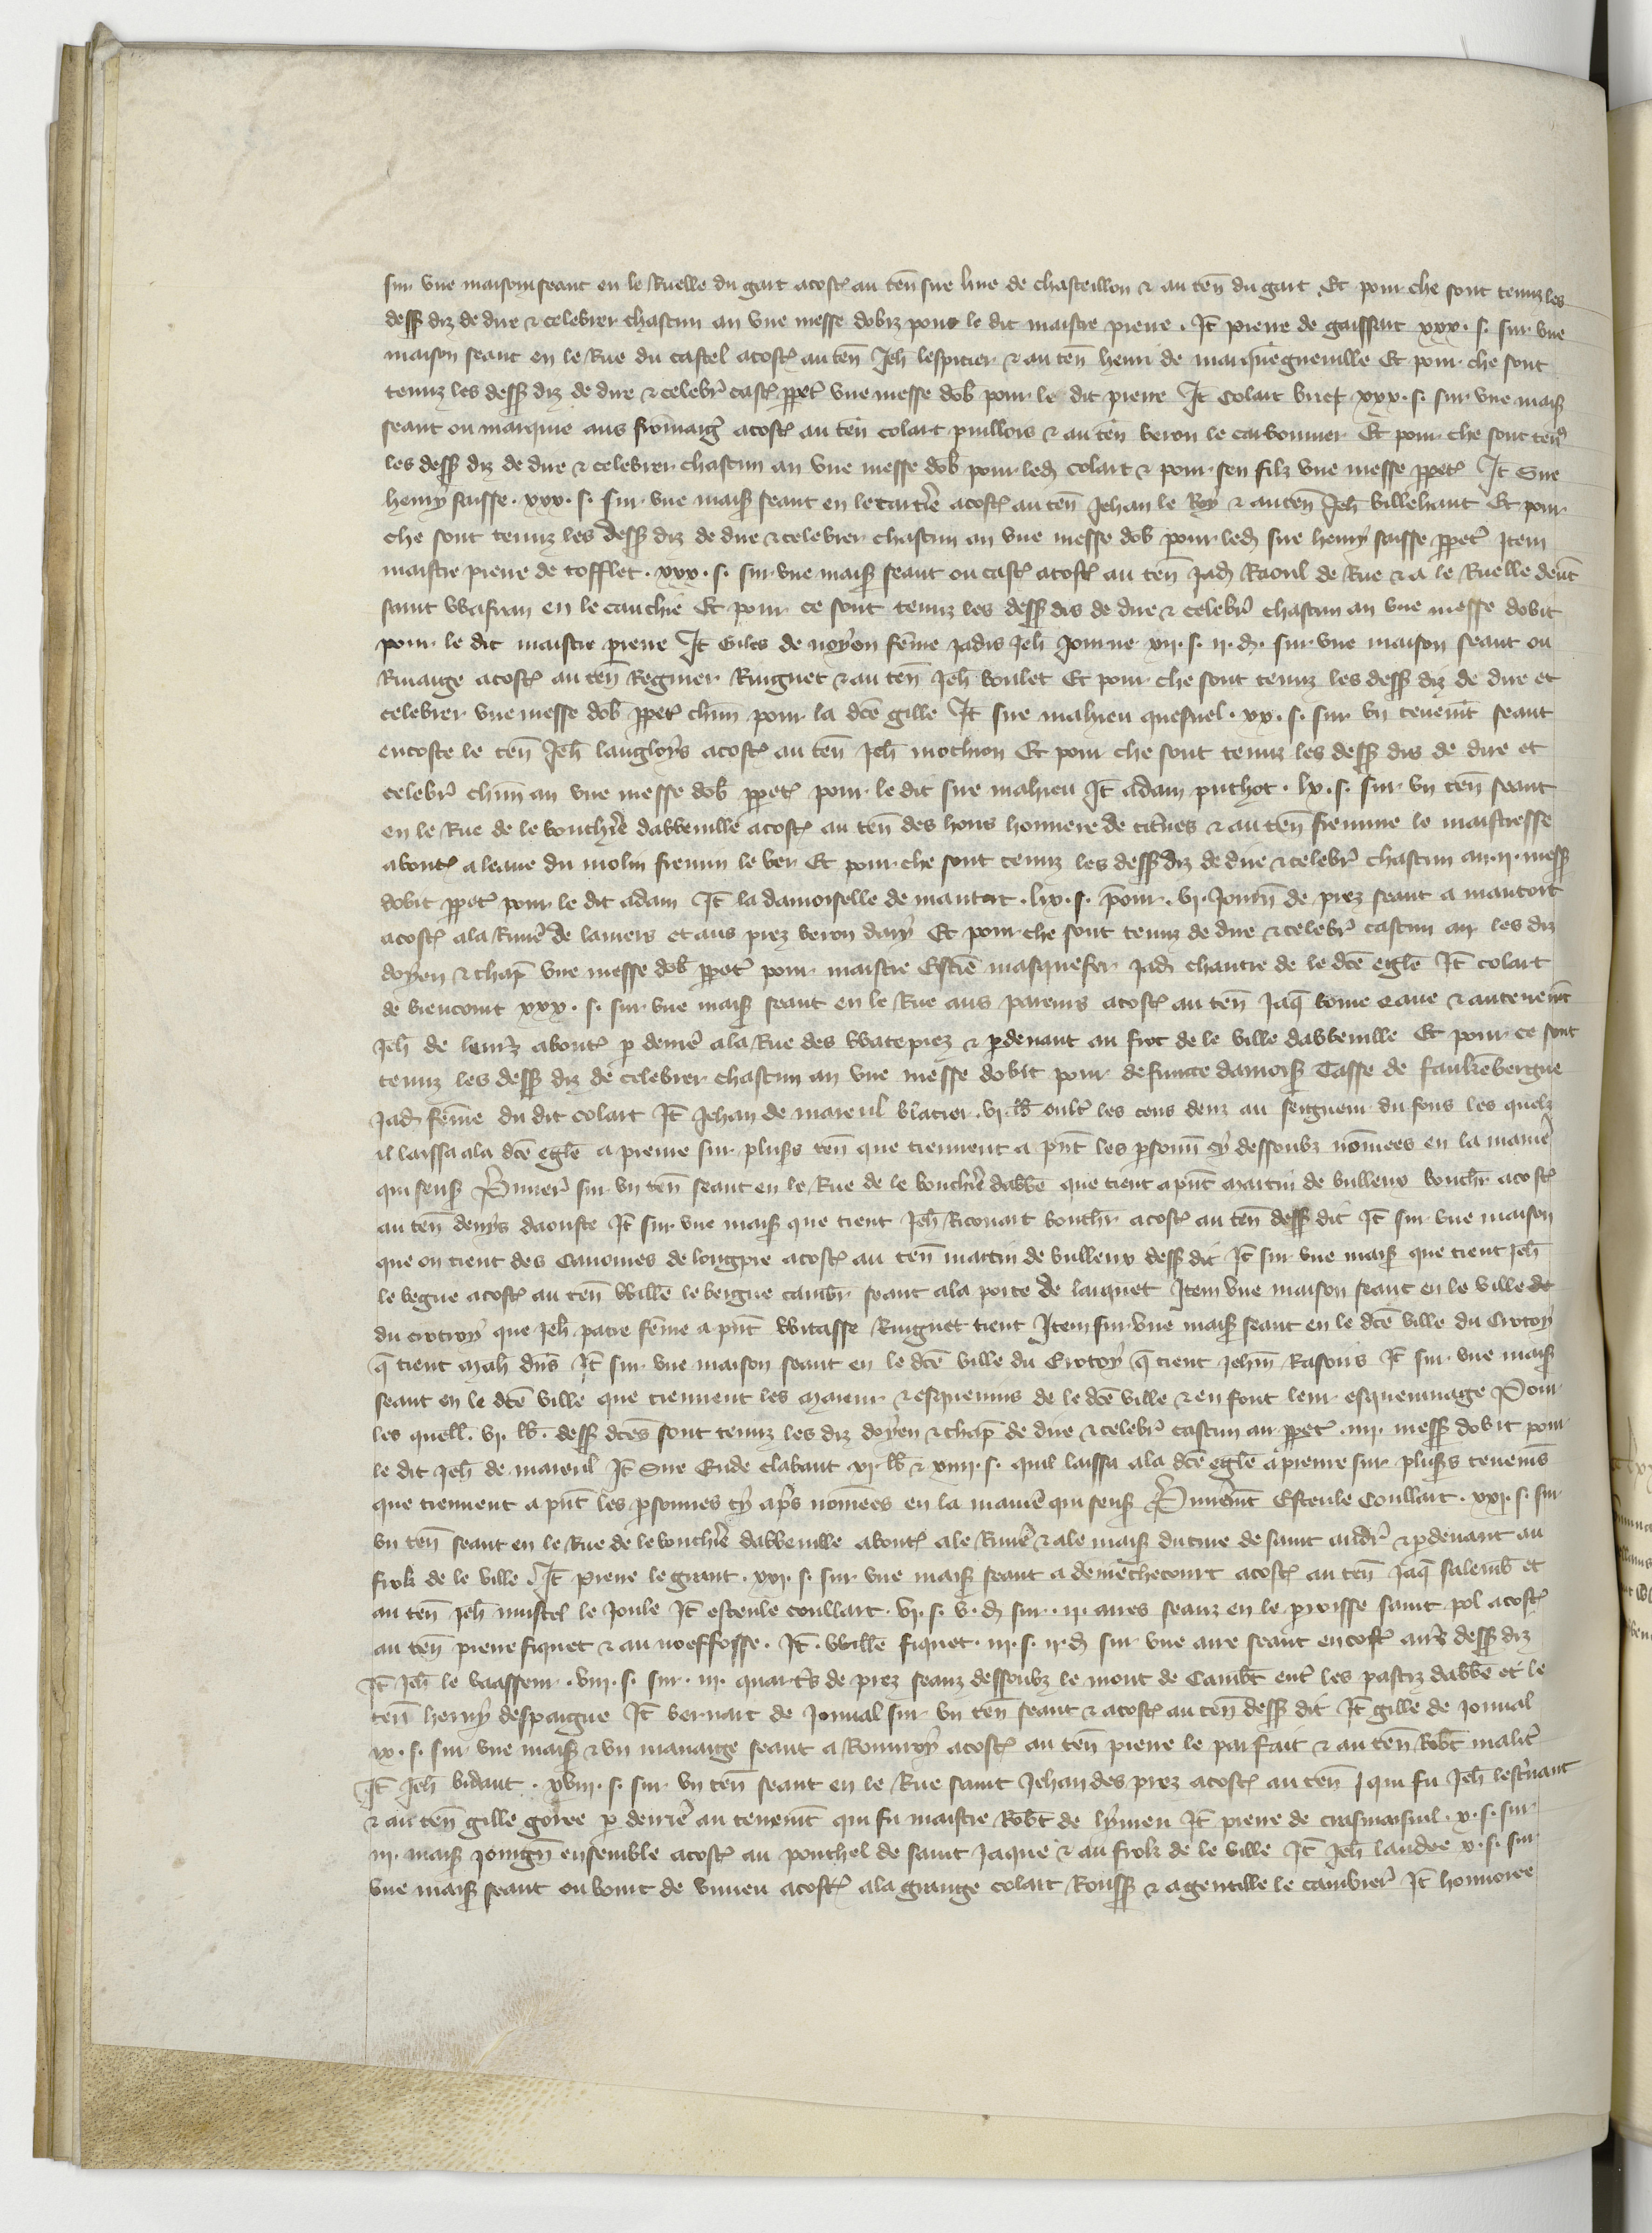 sur vne maison seant en le Ruelle du gart acost au ten̄ sire hue de chasteillon & au ten̄ du gart Et pour che sont tenuz les
dess diz de dire & celebrer chascun an vne messe dobiz pour le dit maistre pierre . It̄ pierre de gaissart xxx . s . sur vne
maison seant en le Rue du castel acost au ten̄ Jeh̄ lespicier & au ten̄ henri de marquegneuille Et pour che sont
tenuz les dess diz de dire & celebr cast ppet vne messe dob pour le dit pierre It̄ Colart xxx . s . sur vne mais
seant ou marquie aus fromaig acost au ten̄ colart & au ten̄ veron le carbonnier Et pour che sont ten
les dess diz de dire & celebrer chascun an vne messe dob pour led colart & pour sen filz vne messe ppet It̄ Sire
henry sausse . xxx . s . sur vne mais seant en le acost au ten̄ Jehan le Roy & au ten̄ Jeh̄ Villehaut Et pour
che sont tenuz les dess diz de dire & celebrer chascun an vne messe dob pour led sire henry sausse ppet Item
maistre pierre de tofflet . xxx . s . sur vne mais seant ou cast acost au ten̄ Jad Raoul de Rue & a le Ruelle deut
saint Wlfran en le cauchie Et pour ce sont tenuz les dess dis de dire & celebr chascun an vne messe dobit
pour le dit maistre pierre It̄ Giles de noyon fem̄e Jadis Jeh̄ Journe xii . s . ii . d . sur vne maison seant ou
Riuaige acost au ten̄ Regnier Ringuet & au ten̄ Jeh̄ boulet Et pour che sont tenuz les dess diz de dire et
celebrer vne messe dob ppet chūn pour la dc̄e gille It̄ sire mahieu quesnel . xx . s . sur vn tenemt seant
encoste le ten̄ Jeh̄ langloys acost au ten̄ Jeh̄ mochion Et pour che sont tenuz les dess dis de dire et
celebr chūn an vne messe dob ppet pour le dit sire mahieu It̄ adam puchot . lx . s . sur vn ten̄ seant
en le Rue de le bouchīe dabbeuille acost au ten̄ des hons honnere de & au ten̄ fremine le maistresse
about a leaue du molin fremin le ver Et pour che sont tenuz les dess diz de dire & celebr chascun an . ii . mess
dobit ppet pour le dit adam It̄ la damoiselle de mautort . lx . s . pour . vi . Journ̄ de prez seant a mautort
acost a la Riuie de lauiers et aus prez veron dary Et pour che sont tenuz de dire & celebr cascun an les diz
doyen & chap vne messe dob ppet pour maistre Estie masquefer Jad chantre de le dc̄e eglē It̄ colart
de biencourt xxx . s . sur vne mais seant en le Rue aus pareurs acost au ten̄ Jaq̄ & au tenemt
Jeh̄ de about p derrie a la Rue des Watepiez & p deuant au froc de le ville dabbeuille Et pour ce sont
tenuz les dess diz de celebrer chascun an vne messe dobit pour defuncte damois Tasse de faukenbergue
Jad fem̄e du dit colart It̄ Jehan de mareul blatier . vi . lb̄ oult les cens deuz au seigneur du fons les quelz
il laissa a la dc̄e eglē a prenre sur plus ten̄ que tiennent a pnt les psonn̄ cy dessoubz nom̄ees en la maniē
qui sens Primer sur vn ten̄ seant en le Rue de le bouchīe dabbē que tient a pnt martin de bulleux bouchr acost
au ten̄ denys daouste It̄ sur vne mais que tient Jeh̄ Ricouart bouchr acost au ten̄ dess dit It̄ sur vne maison
que on tient des Canonnes de longpre acost au ten̄ martin de bulleux dess dit It̄ sur vne mais que tient Jeh̄
le begue acost au ten̄ Willē le bergue cambr seant a la porte de larquet Item vne maison seant en le ville de
du crotoy que Jeh̄ patre fem̄e a pnt Witasse Ringuet tient Item sur vne mais seant en le dc̄e ville du Crotoy
q̄ tient Mah It̄ sur vne maison seant en le dc̄e ville du Crotoy q̄ tient Jehm̄ Rasoirs It̄ sur vne mais
seant en le dc̄e ville que tiennent les maieur & esqueuins de le dc̄e ville & en font leur esqueuinage Pour
les quell . vi . lb̄ . dess dc̄es sont tenuz les diz doyen & chap de dire & celebr cascun an ppet . iiii . mess dobit pour
le dit Jeh̄ de mareul It̄ Sire Eude clabaut vi . lb̄ & xiiii . s . quil laissa a la dc̄e eglē a prenre sur plus tenemˢ
que tiennent a pnt les psonnes cy aps nom̄ees en la maniē qui sens Primemt Esteule Coullart . xxi . s . sur
vn ten̄ seant en le Rue de le bouchīe dabbeuille about a le Riuie & a le mais du cure de saint andr & p deuant au
frok de le ville . It̄ pierre le grant . xxi . s . sur vne mais seant a demēchecourt acost au ten̄ Jaq̄ salemb et
au ten̄ Jeh̄ mustel le Joule It̄ esteule coullart . vi . s . v . d sur . ii . aires seanz en le pairoisse saint pol acost
au ten̄ pierre fiquet & au noeffosse . It̄ . Willē fiquet . iii . s . ii . d sur vne aire seant encost aus dess diz
It̄ Jeh̄ le vaasseur . viii . s . sur . iii . quarts de prez seanz dessoubz le mont de Camb̄t ent les pastiz dabbē et le
ten̄ henry despaigne It̄ bernart de Jonual sur vn ten̄ seant & acost au ten̄ dess dit It̄ gille de Jonual
ix . s . sur vne mais & vn manaige seant a Rouuroy acost au ten̄ pierre le parfait & au ten̄ Robt malit
It̄ Jeh̄ bidaut . xviii . s . sur vn ten̄ seant en le Rue saint Jehan des prez acost au ten̄ qui fu Jeh̄ lescuant
& au ten̄ gille goree p derrie au tenemt qui fu maistre Robt de lymeu It̄ pierre de crasmaisnil . x . s . sur
iii . mais Joingn̄ ensemble acost au ponchel de saint Jaque & au frok de le ville It̄ Jeh̄ landee x . s . sur
vne mais seant ou bourc de vimeu acost a la grange colart Rouss & a gentille le cambrier It̄ honnoree